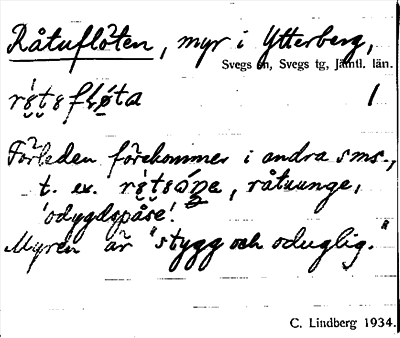 Råtuflöten, myr i Ytterberg,
Svegs sn, Svegs tg, Jämtl. län.
1
Förleden förekommer i andra sms.,
t. ex. råtuunge,
'odygdspåse'.
Myren är "stygg och oduglig."
C. Lindberg 1934.